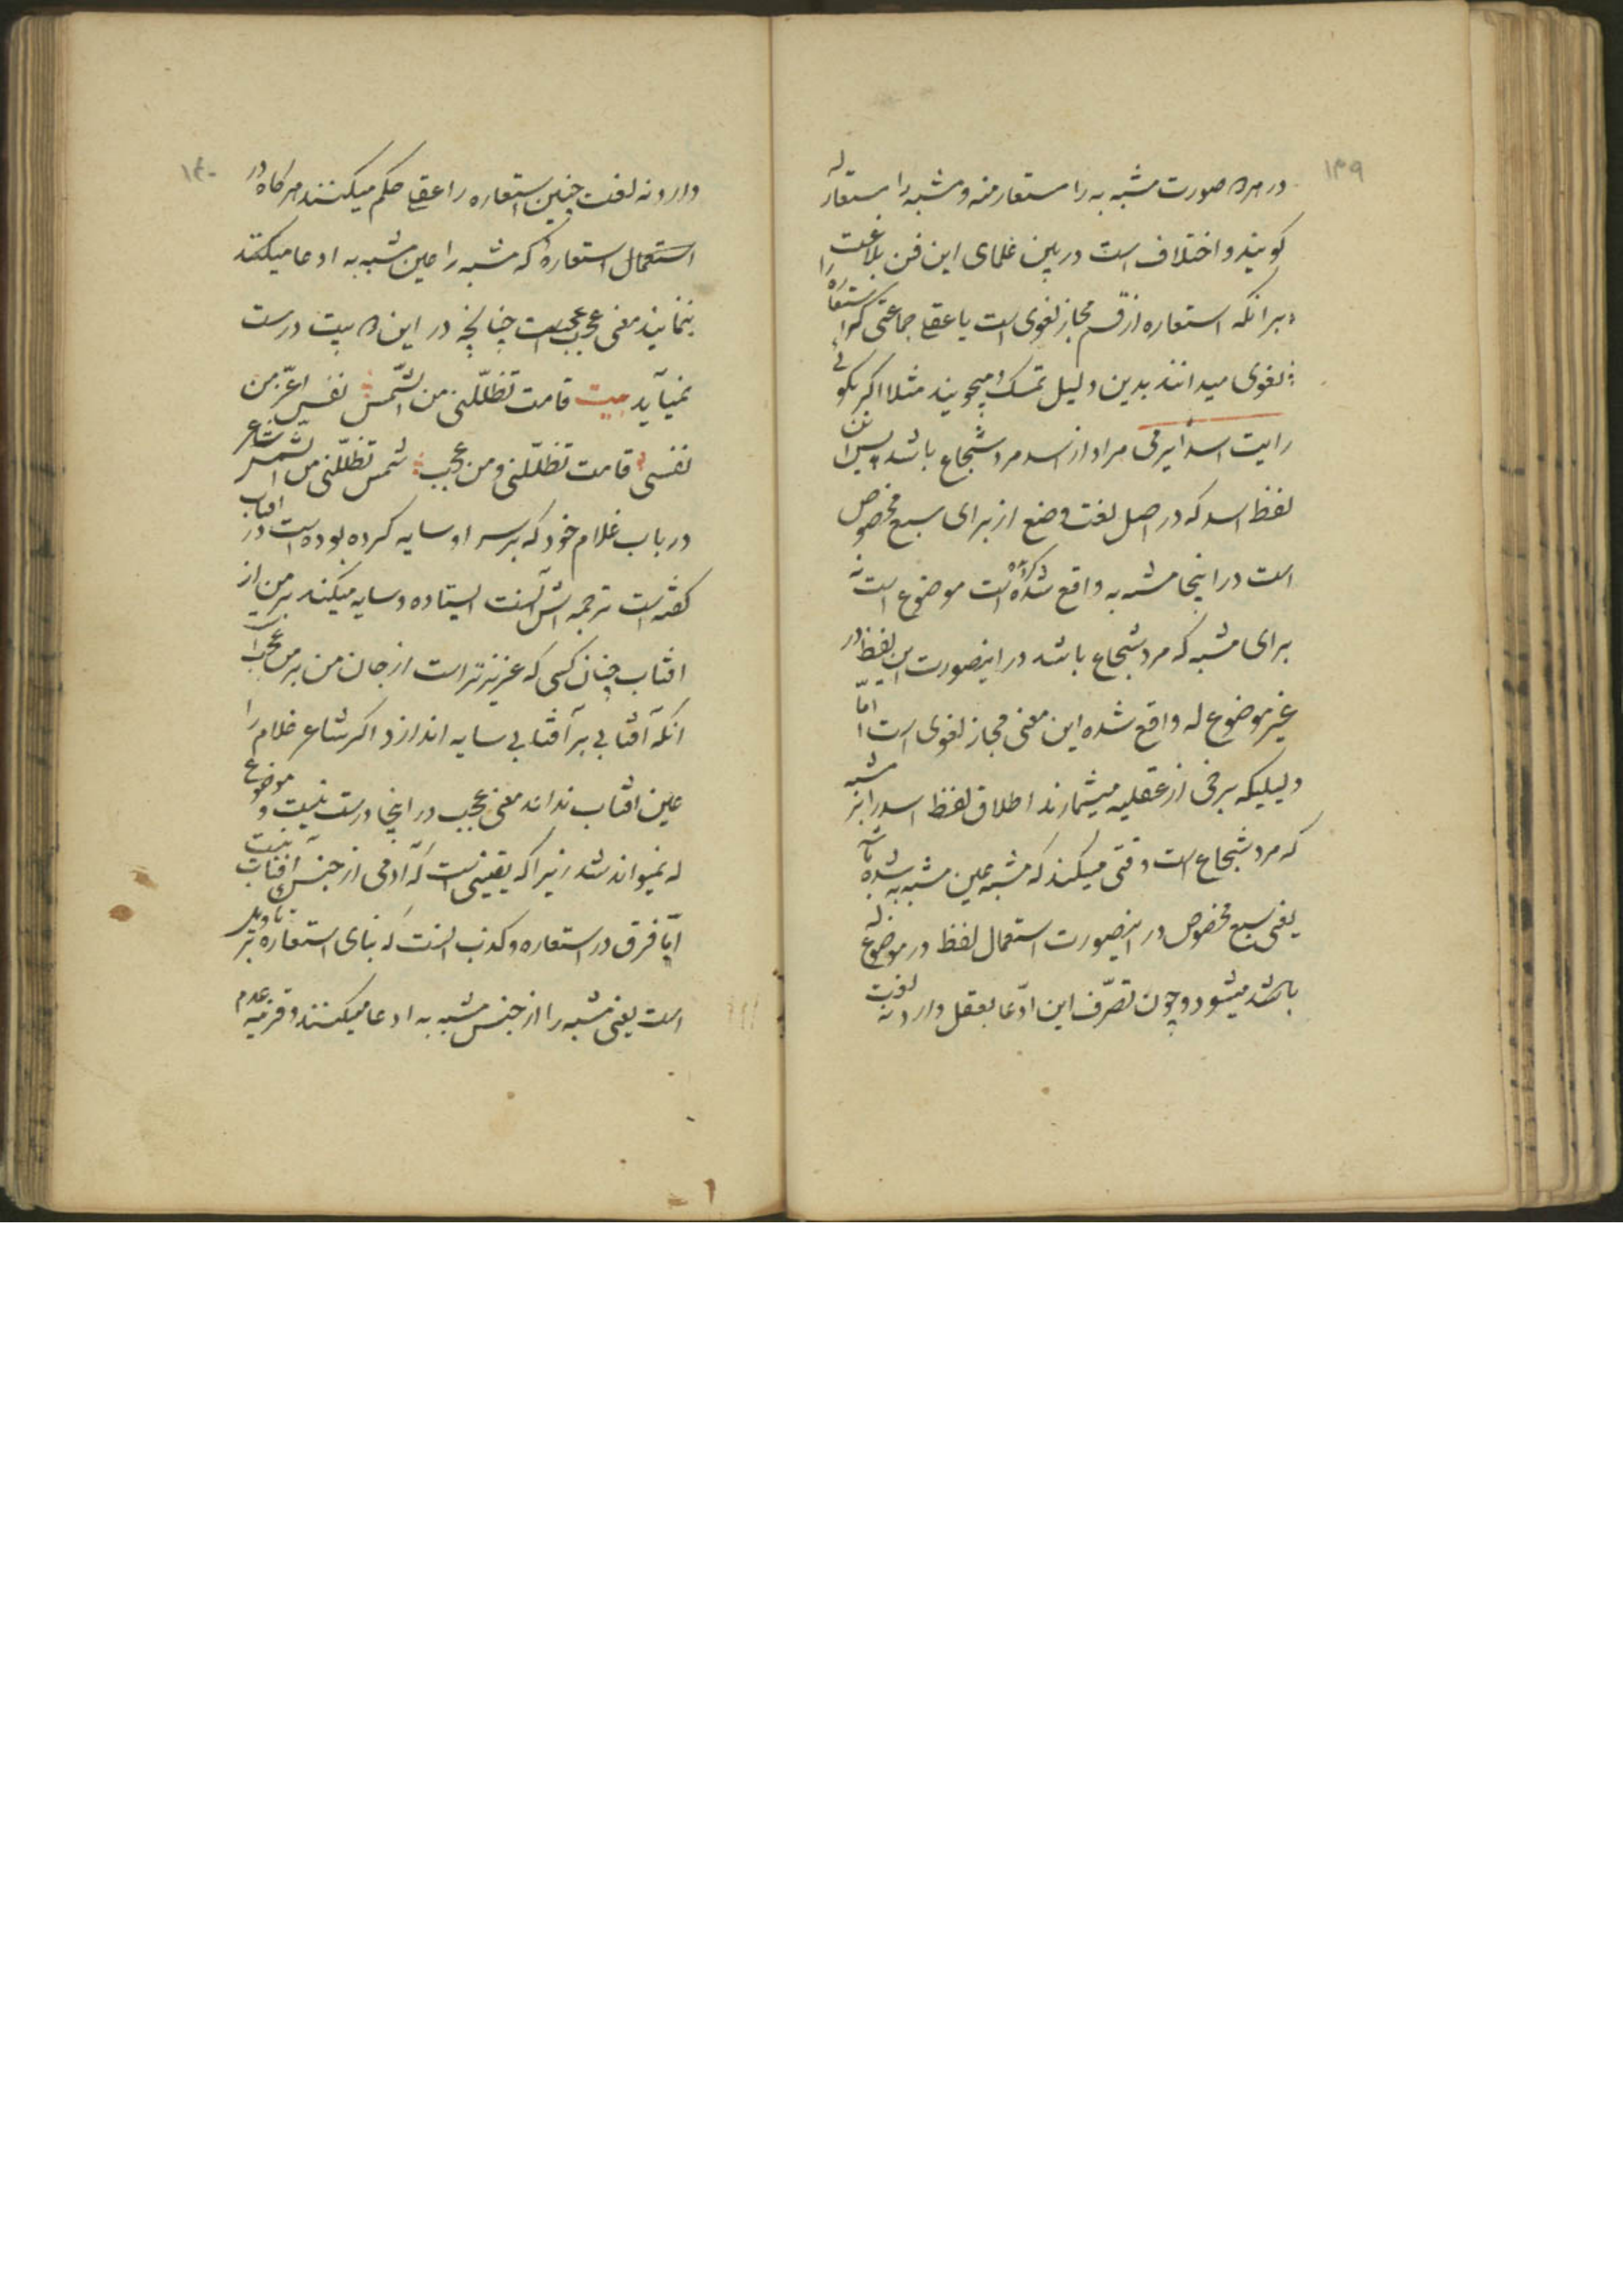 ۱۳۹
در هر دو صورت مشبه به را مستعار منه و مشبه را مستعار له
کویند و اختلاف است در بین علمای این فن بلاغت
برانکه استعاره از قسم مجاز لغوی است یا عقلی جماعتی که استعاره را
لغوی میدانند بدین دلیل تمسک میجویند مثلا اکر بکوئی
رایت اسدا یرمی مراد از اسد مرد شجاع باشد پس این
لفظ اسد که در اصل لغت وضع از برای سبع مخصوص
است در اینجا مشبه به واقع شده است موضوع است نه
برای مشبه که مرد شجاع باشد در اینصورت این لفظ در
غیر موضوع له واقع شده این معنی مجاز لغوی است اما
دلیلیکه برخی از عقلیه میشمارند اطلاق لفظ اسد را بر مشبه
که مرد شجاع است وقتی میکند که مشبه عین مشبه به شده باشد
یعنی سبع مخصوص در اینصورت استعمال لفظ در موضوع له
باشد میشود و چون تصرف این ادعا بعقل دارد نه لغت
۱۴۰
دارد نه لغت چنین استعاره را عقلی حکم میکنند هرکاه در
استعمال استعاره که مشبه را عین مشبه به ادعا میکنند
ننمایند معنی عجیب است چنانچه در این دو بیت درست
نمیآید بیت قامت تظلّلنی من الشّمس نفس اعزّ من
نفسی قامت تظلّلنی و من عجب شمس تظلّلنی من الشّمس شاعر
در باب غلام خود که بر سر او سایه کرده بوده است در آفتاب
کفته است ترجمه اش آنست ایستاده و سایه میکند بر من از
افتاب چنان کسی که عزیزتر است از جان من بر من عجب است
انکه آفتابی بر آفتابی سایه اندازد اکر شاعر غلام را
عین افتاب نداند معنی عجیب در اینجا درست نیست و موضوع
له نمیتواند شد زیرا که یقینی است که آدمی از جنس آفتاب نیست
امّا فرق در استعاره و کذب آنست که بنای استعاره بر تاویل
است یعنی مشبه را از جنس مشبه به ادعا میکنند و قرینه عدم